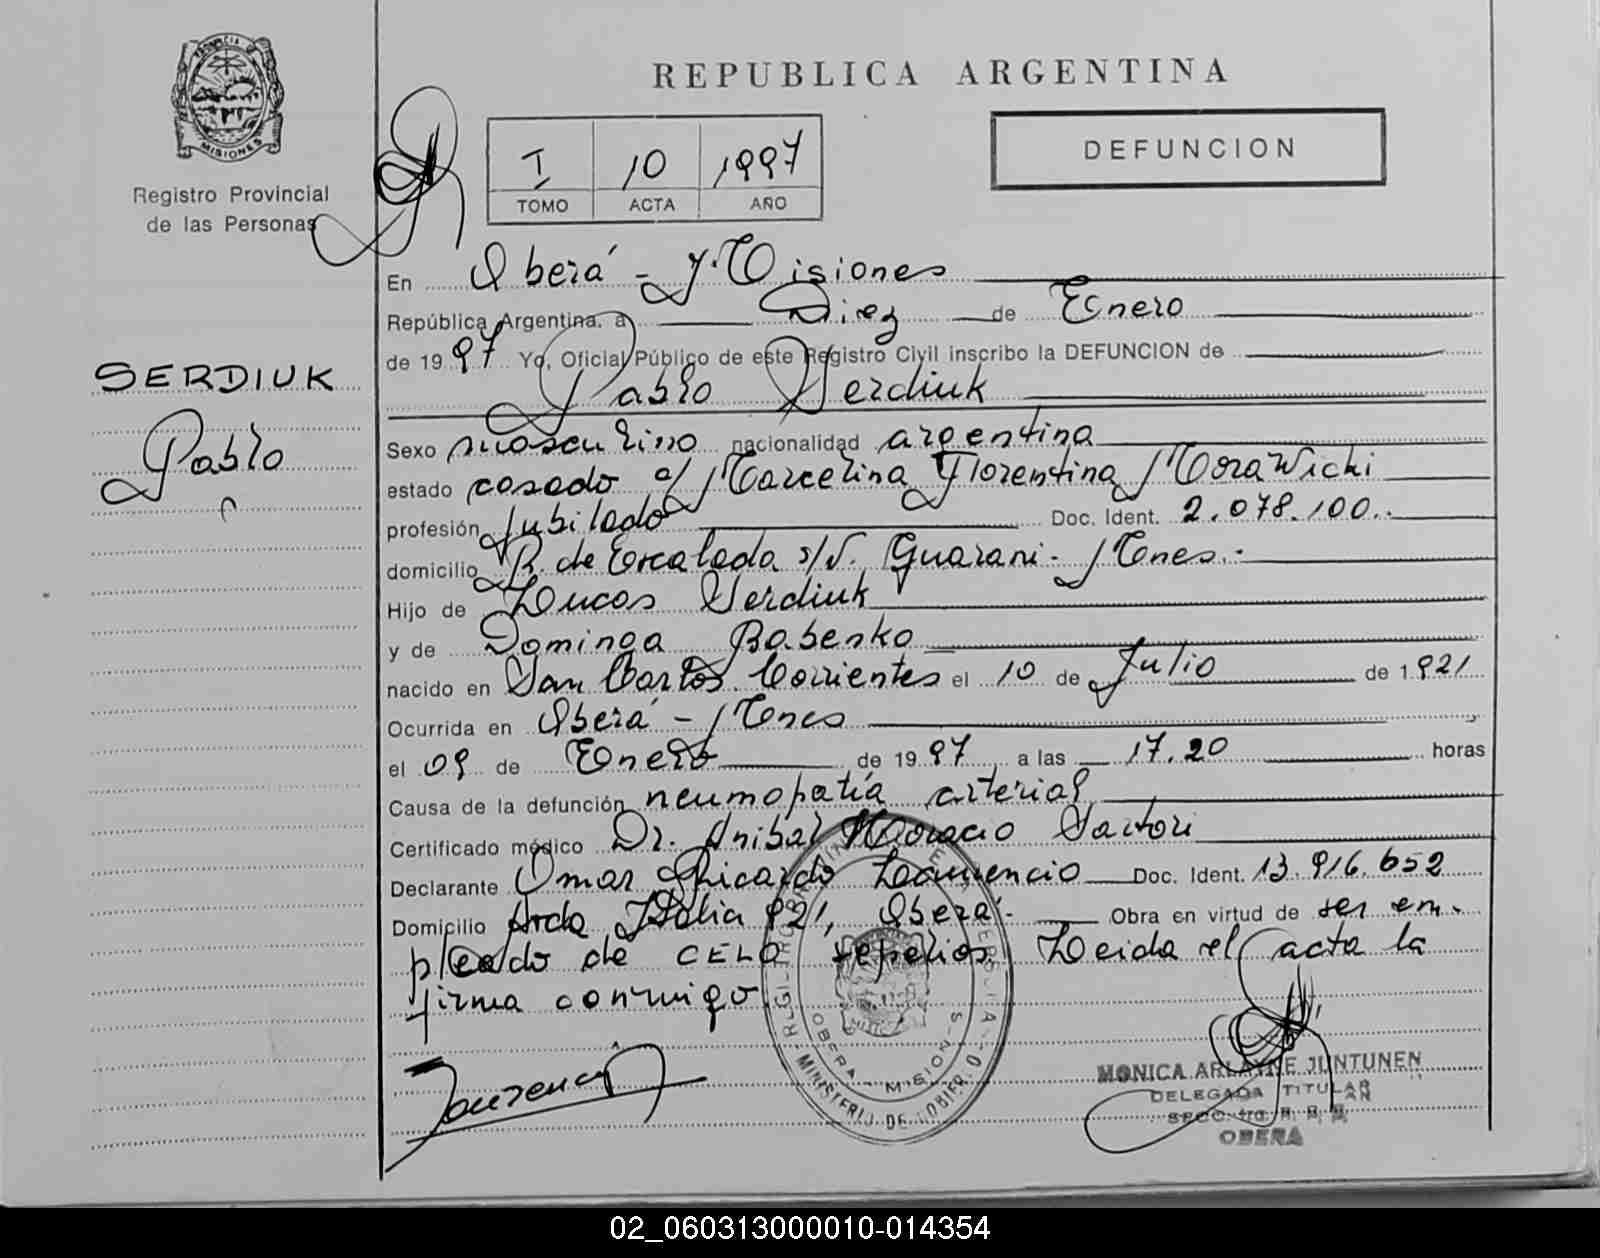 PROVINCIA DE
MISIONES
Registro Provincial
de las Personas
SERDIUK
Pablo
REPUBLICA ARGENTINA
I 10 1997
TOMO ACTA AÑO
DEFUNCION
En Oberá - Misiones
República Argentina, a Diez de Enero
de 1997 Yo, Oficial Público de este Registro Civil inscribo la DEFUNCION de
Pablo Serdiuk
Sexo masculino nacionalidad argentina
estado casado c/ Marcelina Florentina Morawicki
profesión Jubilado Doc. Ident. 2.078.100.
domicilio R. de Escalada s/N. Guarani - Mnes.-
Hijo de Lucas Serdiuk
y de Dominga Babenko
nacido en San Carlos Corrientes el 10 de Julio de 1921
Ocurrida en Oberá - Mnes
el 09 de Enero de 1997 a las 17.20 horas
Causa de la defunción neumopatía arterial
Certificado médico Dr. Anibal Horacio Sartori
Declarante Omar Ricardo Laurencio Doc. Ident. 13.916.652
Domicilio Avda Italia 921, Oberá- Obra en virtud de ser em-
pleado de CELO sepelios. Leida el acta la
firma conmigo
OBERA - MISIONES
MINISTERIO DE GOBIERNO
MONICA ARLAYNE JUNTUNEN
DELEGADA TITULAR
OBERA
02_060313000010-014354